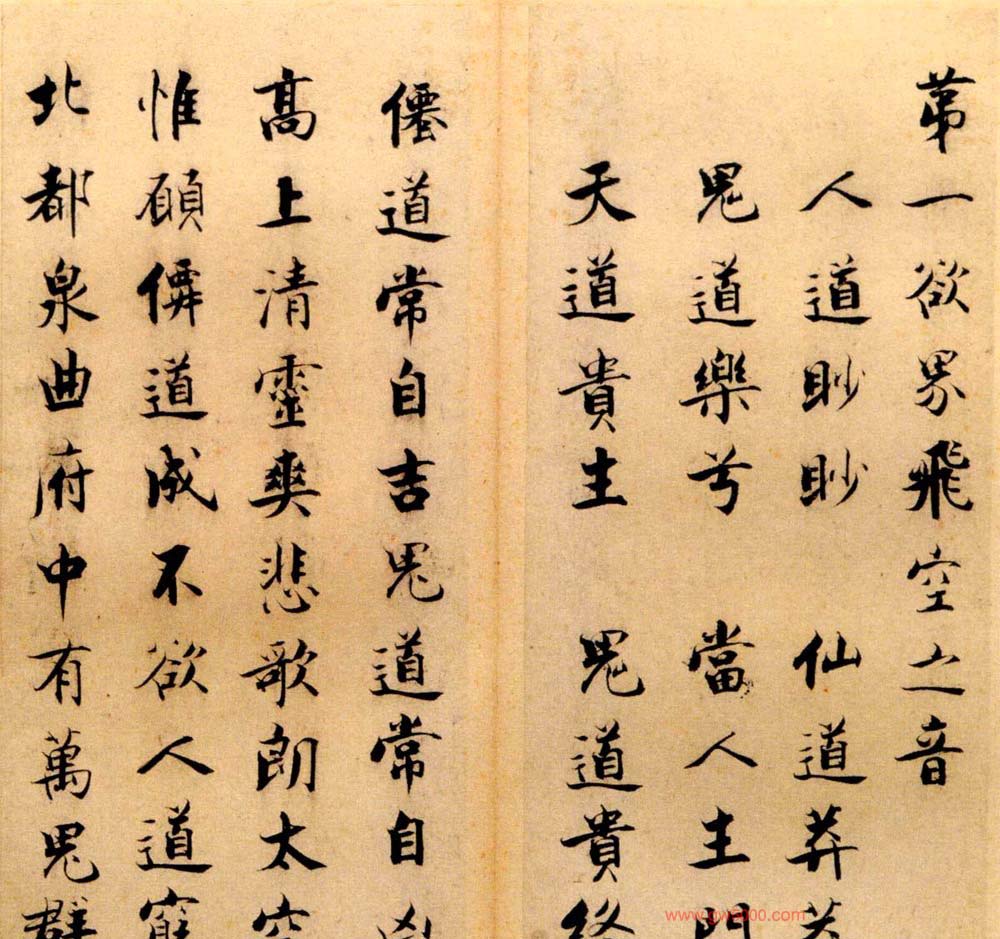 苐一欲界飛空之音
人道眇眇 仙道莽莽
鬼道樂兮 當人生門
天道貴生 鬼道貴終
僊道常自吉鬼道常自凶
高上清靈爽悲歌朗太空
惟願僊道成不欲人道窮
北都泉曲府中有萬鬼群